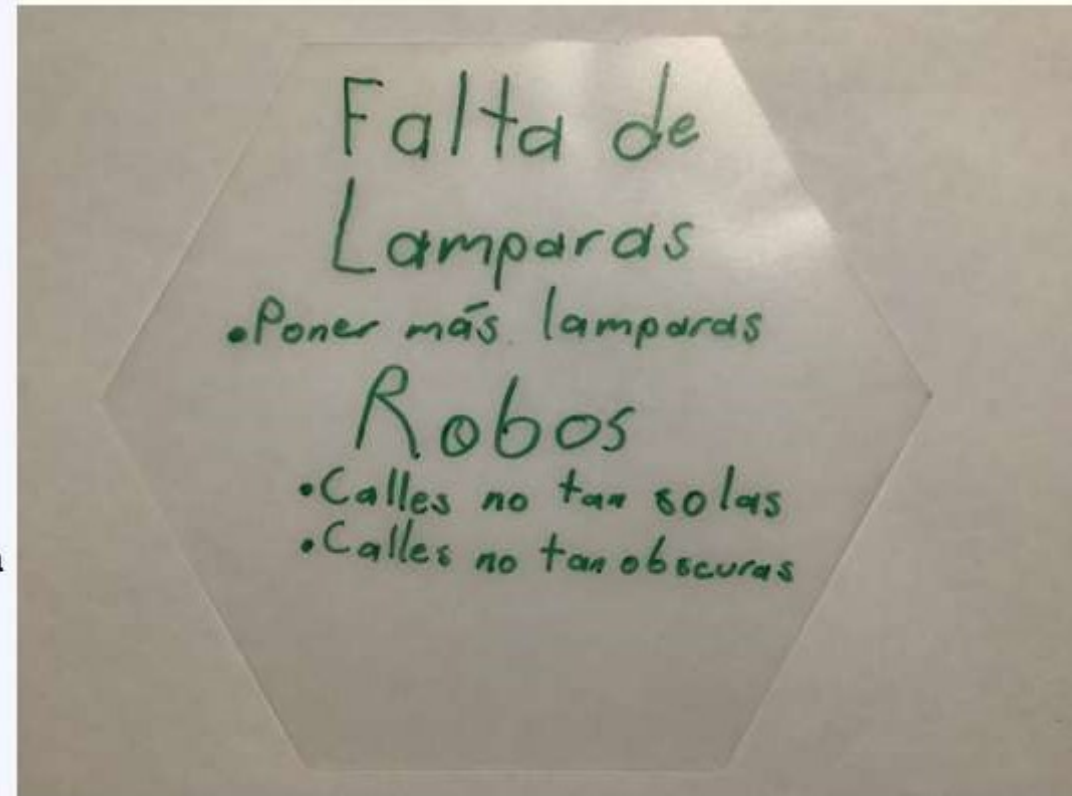 Falta de
Lamparas
•Poner más lamparas
Robos
•Calles no tan solas
•Calles no tan obscuras